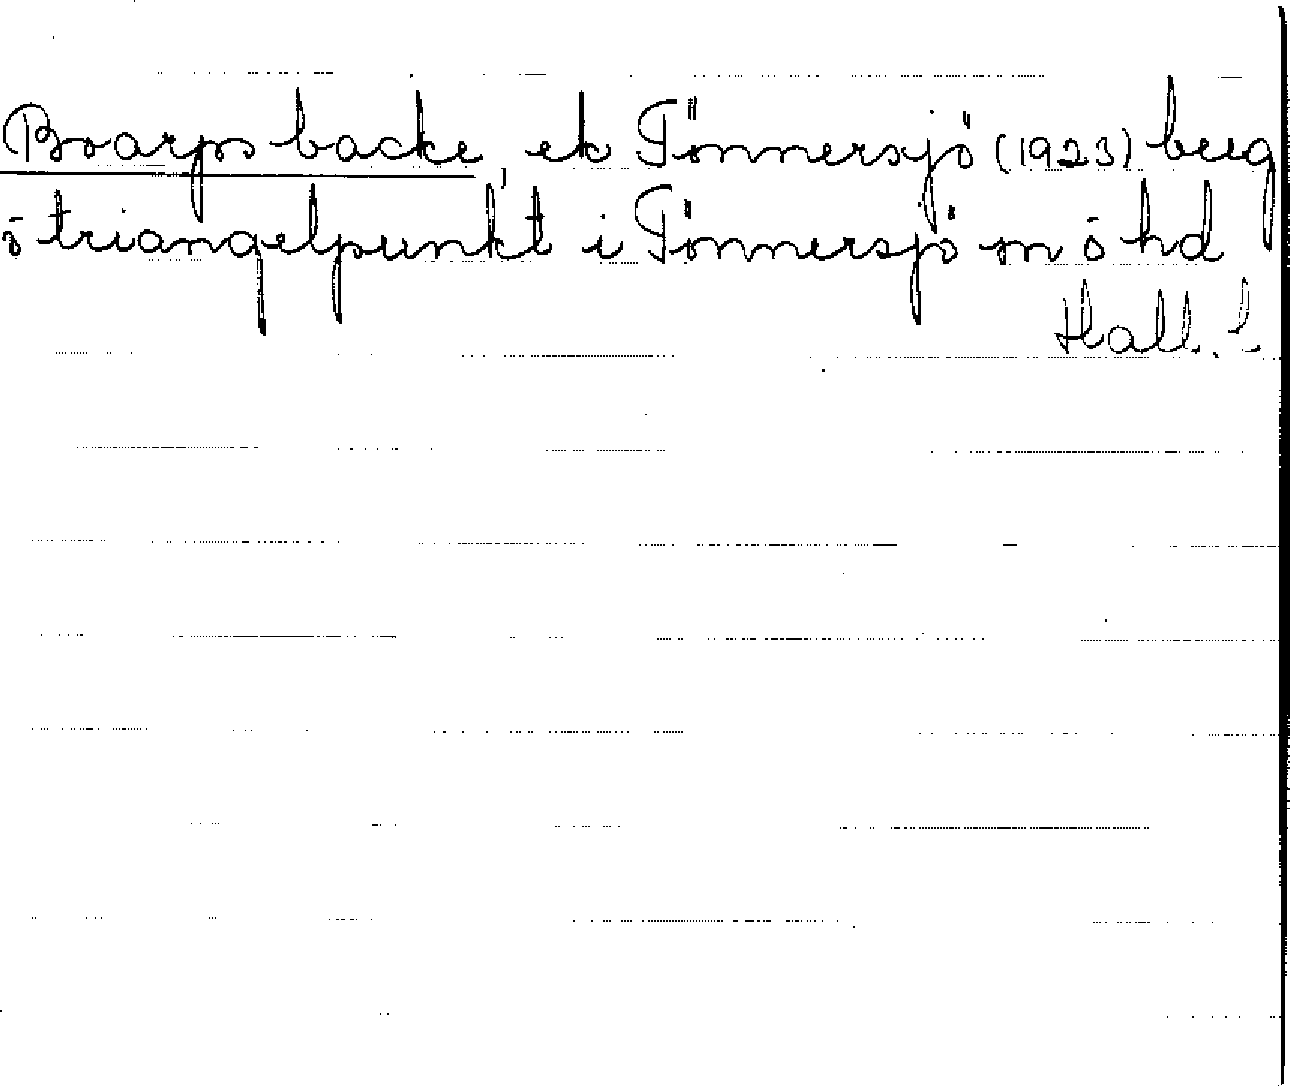 Boarps backe, ek Tönnersjö (1923) berg
o triangelpunkt i Tönnersjö sn o hd
Hall.l.